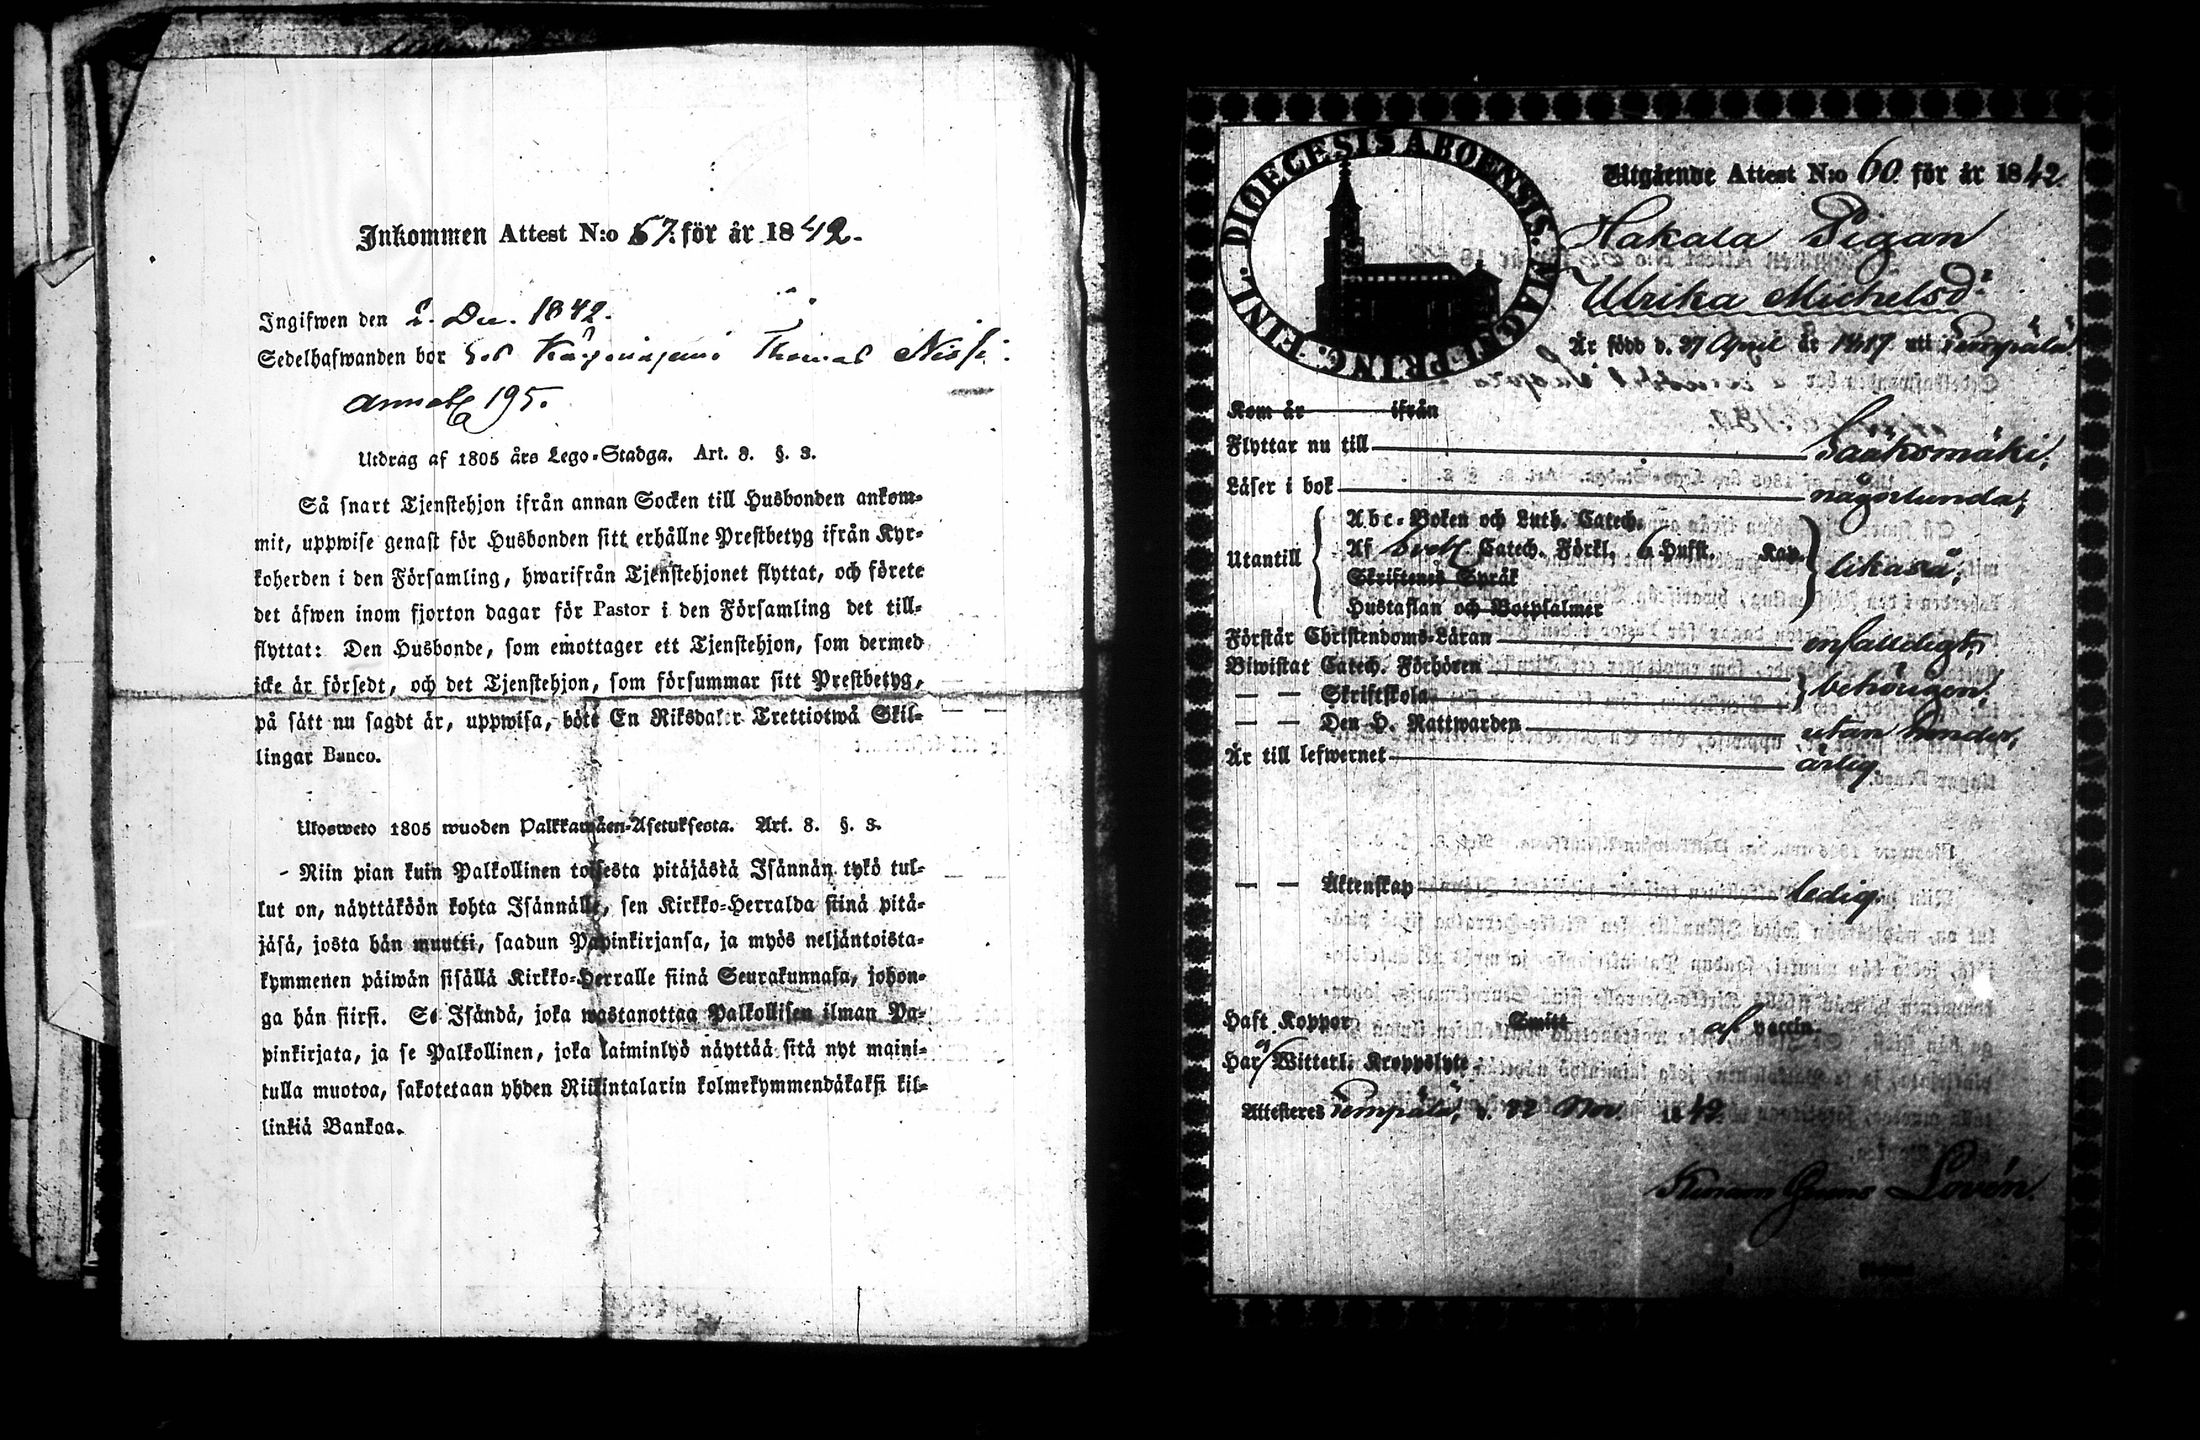 Inkommen Attest N:o 57. för år 1842.
Ingifwen den 2. Dec. 1842.
Sedelhafwanden bor hos Thomas Nissi.
195.
Utdrag af 1805 års Lego-Stadga. Art. 8. §. 3.
Så snart Tjenstehjon ifrån annan Socken till Husbonden ankom-
mit, uppwise genast för Husbonden sitt erhållne Prestbetyg ifrån Kyr-
koherden i den Församling, hwarifrån Tjenstehjonet flyttat, och förete
det äfwen inom fjorton dagar för Pastor i den Församling det till-
flyttat: Den Husbonde, som emottager ett Tjenstehjon, som dermed
icke är försedt, och det Tjenstehjon, som försummar sitt Prestbetyg,
på sätt nu sagdt är, uppwisa, böte En Riksdaler Trettiotwå Skil-
lingar Banco.
Ulosweto 1805 wuoden Palkkawäen-Asetuksesta. Art. 8. §. 3.
- Niin pian kuin Palkollinen toisesta pitäjästä Isännän tykö tul-
lut on, näyttäköön kohta Isännälle, sen Kirkko-Herralda siinä pitä-
jäsä, josta hän muutti, saadun Papinkirjansa, ja myös neljäntoista-
kymmenen päiwän sisällä Kirkko-Herralle siinä Seurakunnasa, johon-
ga hän siirsi. Se Isändä, joka wastanottaa Palkollisen ilman Pa-
pinkirjata, ja se Palkollinen, joka laiminlyö näyttää sitä nyt maini-
tulla muotoa, sakotetaan yhden Riikintalarin kolmekymmendäkaksi kil-
linkiä Bankoa.
DIOECESIS ABOENSIS. MAGNI PRINC. FINL.
Utgående Attest N:o 60. för år 1842.
Hakala Pigan
Ulrika Michelsd:r
Är född d. 27 April år 1817 uti Lempälä.
Kom år ifrån
Flyttar nu till Sääksmäki,
Läser i bok någorlunda,
Utantill
Abc-Boken och Luth. Catech.
Af Catech. Förkl. 6 Hufst. Kap.
Skriftenes Språk
Hustaflan och Botpsalmer
likaså,
Förstår Christendoms-Läran enfalldigt,
Biwistat Catech. Förhören
— — Skriftskola behörigen,
— — Den H. Nattwarden utan hinder,
Är till lefwernet ärlig.
— — Äktenskap ledig.
Haft Koppor Smitt af vaccin.
Har Witterl. Kroppslyte
Attesteres Lempälä, d. 22 Nov. 1842.
Lovén.